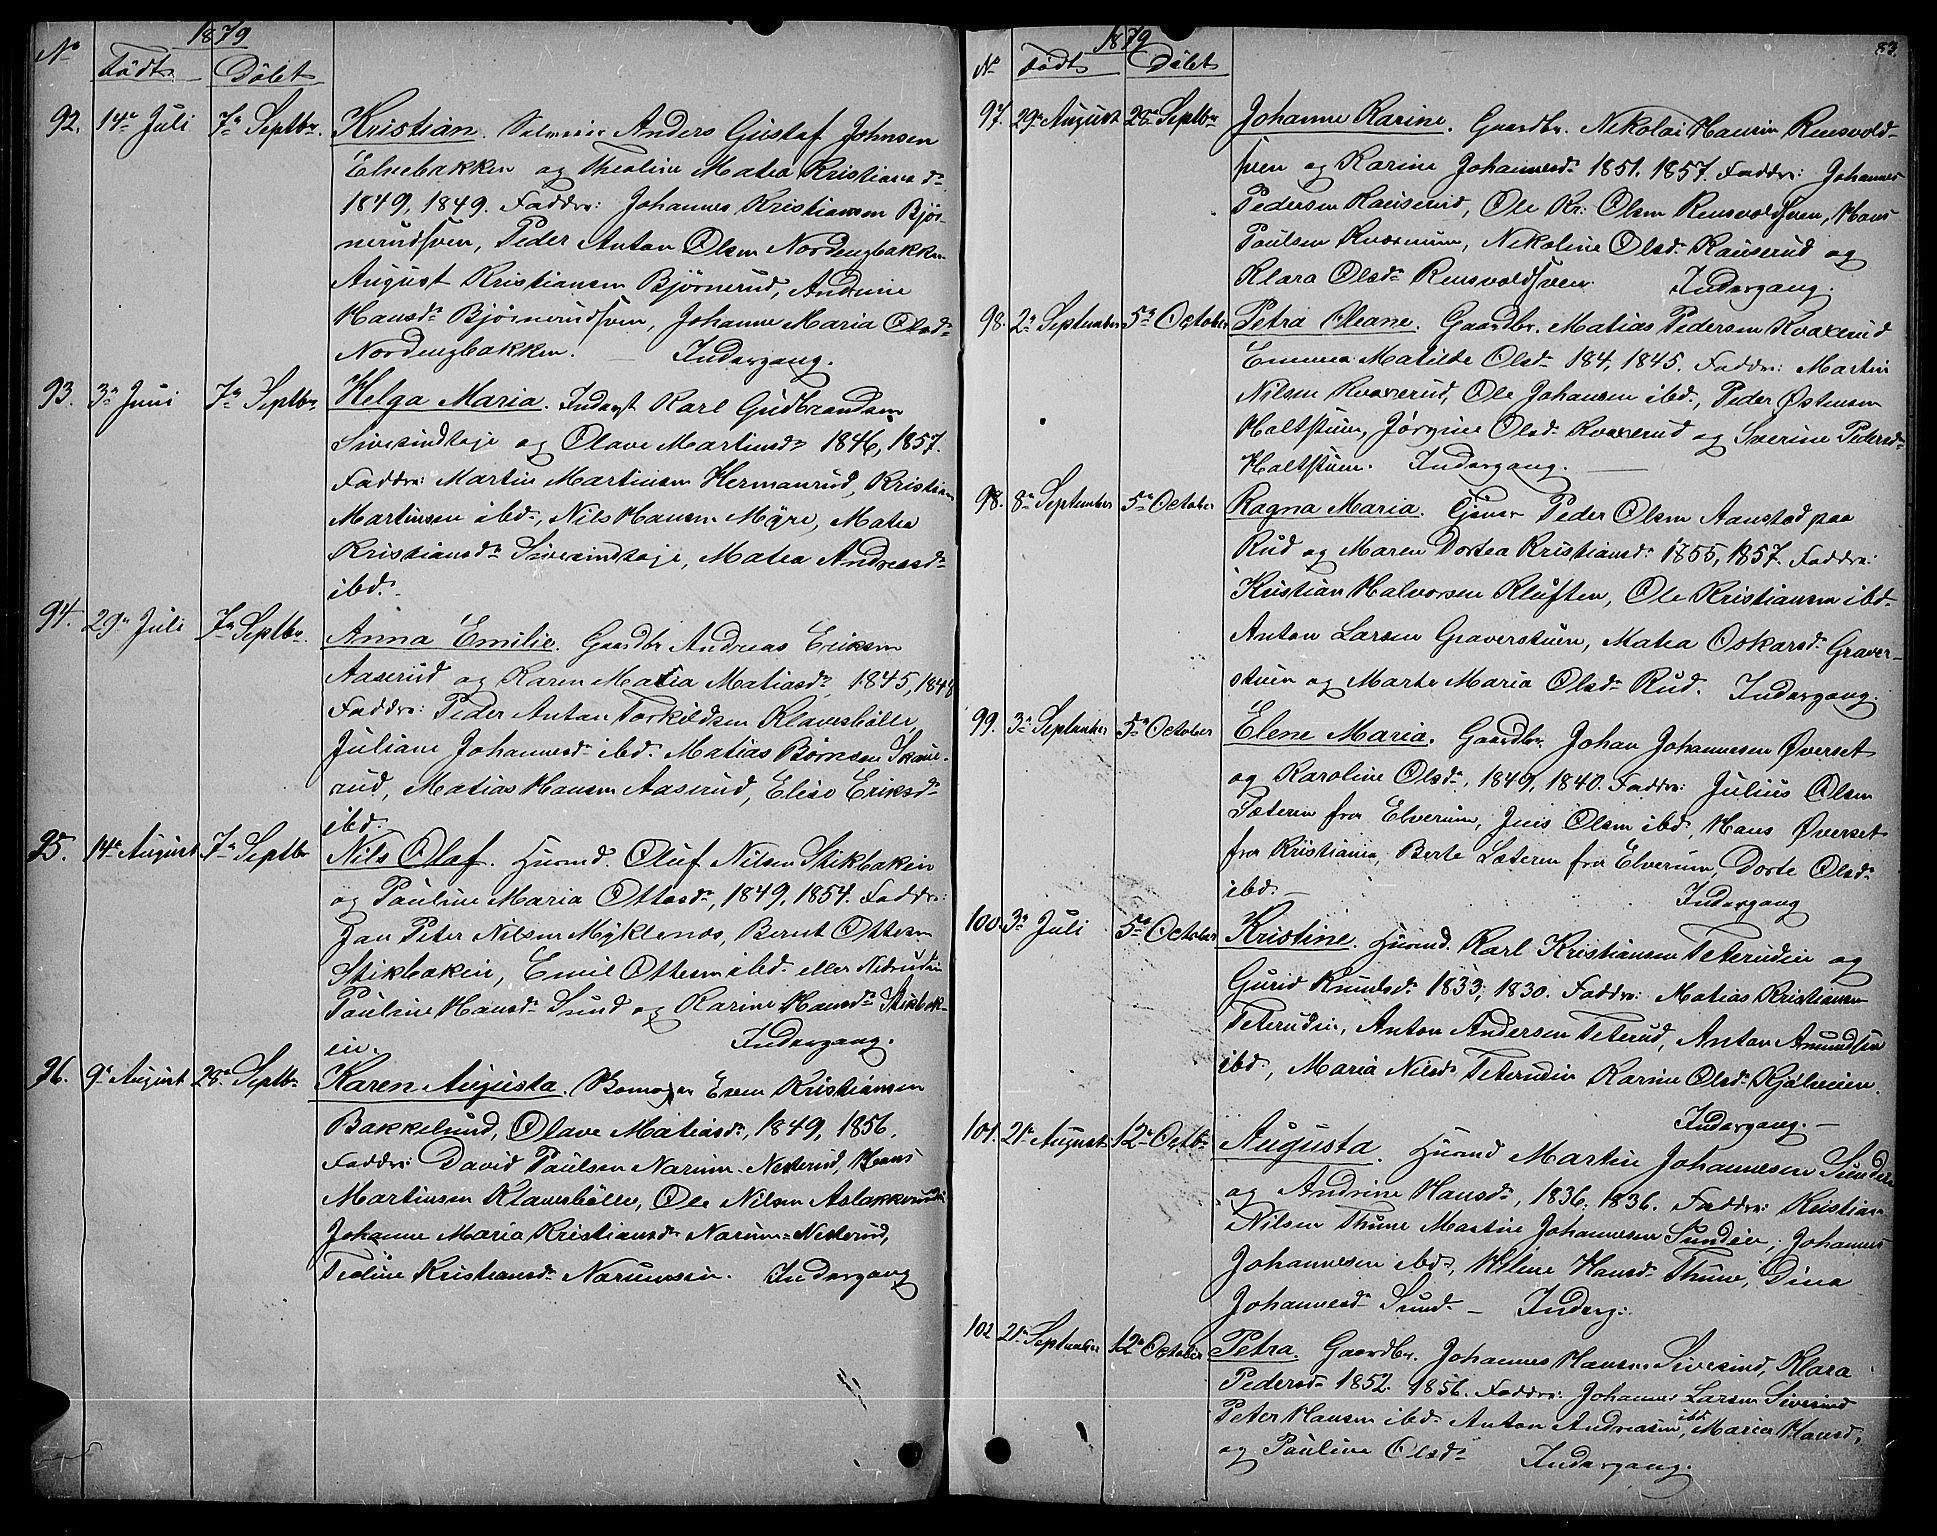 1879
No Födt Döbt
92. 14de Juli 7de Septbr. Kristian. Anders Gustaf Johnsen
Elnebakken og Theoline Matea Kristiansdr
1849, 1849. Faddre: Johannes Kristiansen Bjør-
nerudsven, Peder Anton Olsen Nordengbakken
August Kristiansen Bjørnerud, Andrine
Hansdr Bjørnerudsven, Johanne Maria Olsdr
Nordengbakken. — Indergang.
93. 3de Juni 7de Septbr. Helga Maria. Inderst Karl Gudbrandsen
Sivesindhøje og Olave Martinsdr 1846, 1857.
Faddre: Martin Martinsen Hermanrud, Kristian
Martinsen ibd., Nils Hansen Myre, Matea
Kristiansdr Sivesindhøje, Matea Andreasdr
ibd.
94. 29de Juli 7de Septbr. Anna Emilie. Gaardbr Andreas Eriksen
Aaserud og Karen Maria Matiasdr, 1845, 1848
Faddre: Peder Anton Torkildsen Klavesbölle,
Juliane Johannesdr ibd. Matias Börnsen Skaue-
rud, Matias Hansen Aaserud, Elise Eriksdr
ibd.
95. 14de August 7de Septbr Nils Olaf. Husmd. Oluf Nilsen Stikbakein
og Pauline Maria Ottosdr, 1849, 1854. Faddre:
Jan Peter Nilsen Myklenæs, Bernt Ottesen
Stikbakein, Emil Ottesen ibd. eller Nedrudein
Pauline Hansdr Sund og Karine Hansdr Stikbak-
ein. Indergang.
96. 9de August 28de Septbr Karen Augusta. Even Kristiansen
Bakkelund, Olave Matiasdr, 1849, 1856.
Faddre: David Paulsen Narum-Nesterud, Hans
Martinsen Klavesbölle, Ole Nilsen Aslakkerudein
Johanne Maria Kristiansdr Narum-Nesterud,
Tioline Kristiansdr Narumsein. Indergang
83.
1879
No Födt Döbt
97. 29de August 28de Septbr Johanne Karine. Gaardbr. Nikolai Haurin Rensvold-
sven og Karine Johannesdr 1851. 1857. Faddre: Johannes
Pedersen Rauserud, Ole Kr: Olsen Rensvoldsven, Hans
Paulsen Kværnum, Nikoline Olsdr Rauserud og
Klara Olsdr Rensvoldsven. Indergang.
98. 2de September 5te October Petra Oleane. Gaardbr. Matias Pedersen Kvaxerud
Emma Matilde Olsdr 184, 1845. Faddre: Martin
Nilsen Kvaxerud, Ole Johansen ibd., Peder Østensen
Haltstuen, Jørgine Olsdr Kvaxerud og Severine Pedersdr
Haltstuen. Indergang. —
98. 8de September 5te October Ragna Maria. Tjener Peder Olsen Aanstad paa
Rud og Maren Dortea Kristiansdr 1855, 1857. Faddre:
Kristian Halvorsen Kluften, Ole Kristiansen ibd.
Anton Larsen Graverstuen, Matea Oskarsdr Graver-
stuen og Marte Maria Olsdr Rud. Indergang.
99. 3de September 5te October Elene Maria. Gaardbr. Johan Johannesen Øverset
og Karoline Olsdr, 1849, 1840. Faddre: Julius Olsen
Sæteren fra Elverum, Jens Olsen ibd, Hans Øverset
fra Kristiania, Berte Sæteren fra Elverum, Dorte Olsdr
ibd. — Indergang
100. 3de Juli 5te October Kristine. Husmd. Karl Kristiansen Teterudein og
Gurid Knudsdr 1833, 1830. Faddre: Matias Kristiansen
Teterudein, Anton Andersen Teterud, Anton Amundsen
ibd., Maria Nilsdr Teterudein Karine Olsdr Kjølveien.
Indergang. —
101. 21de August 12te Octbr Augusta. Husmd Martin Johannesen Sundein
og Andrine Hansdr, 1836, 1836. Faddre: Kristian
Nilsen Thune Martin Johannesen Sundein, Johannes
Johannesen ibd., Helene Hansdr Thune, Dina
Johannesdr Sund. — Inderg:
102 21de September 12te October Petra. Gaardbr. Johannes Hansen Sivesind, Klara
Pedersdr 1852. 1856. Faddre: Johannes Larsen Sivesind
Peter Hansen ibd. Anton Andreasen ibd, Maria Hansdr,
og Pauline Olsdr Indergang.